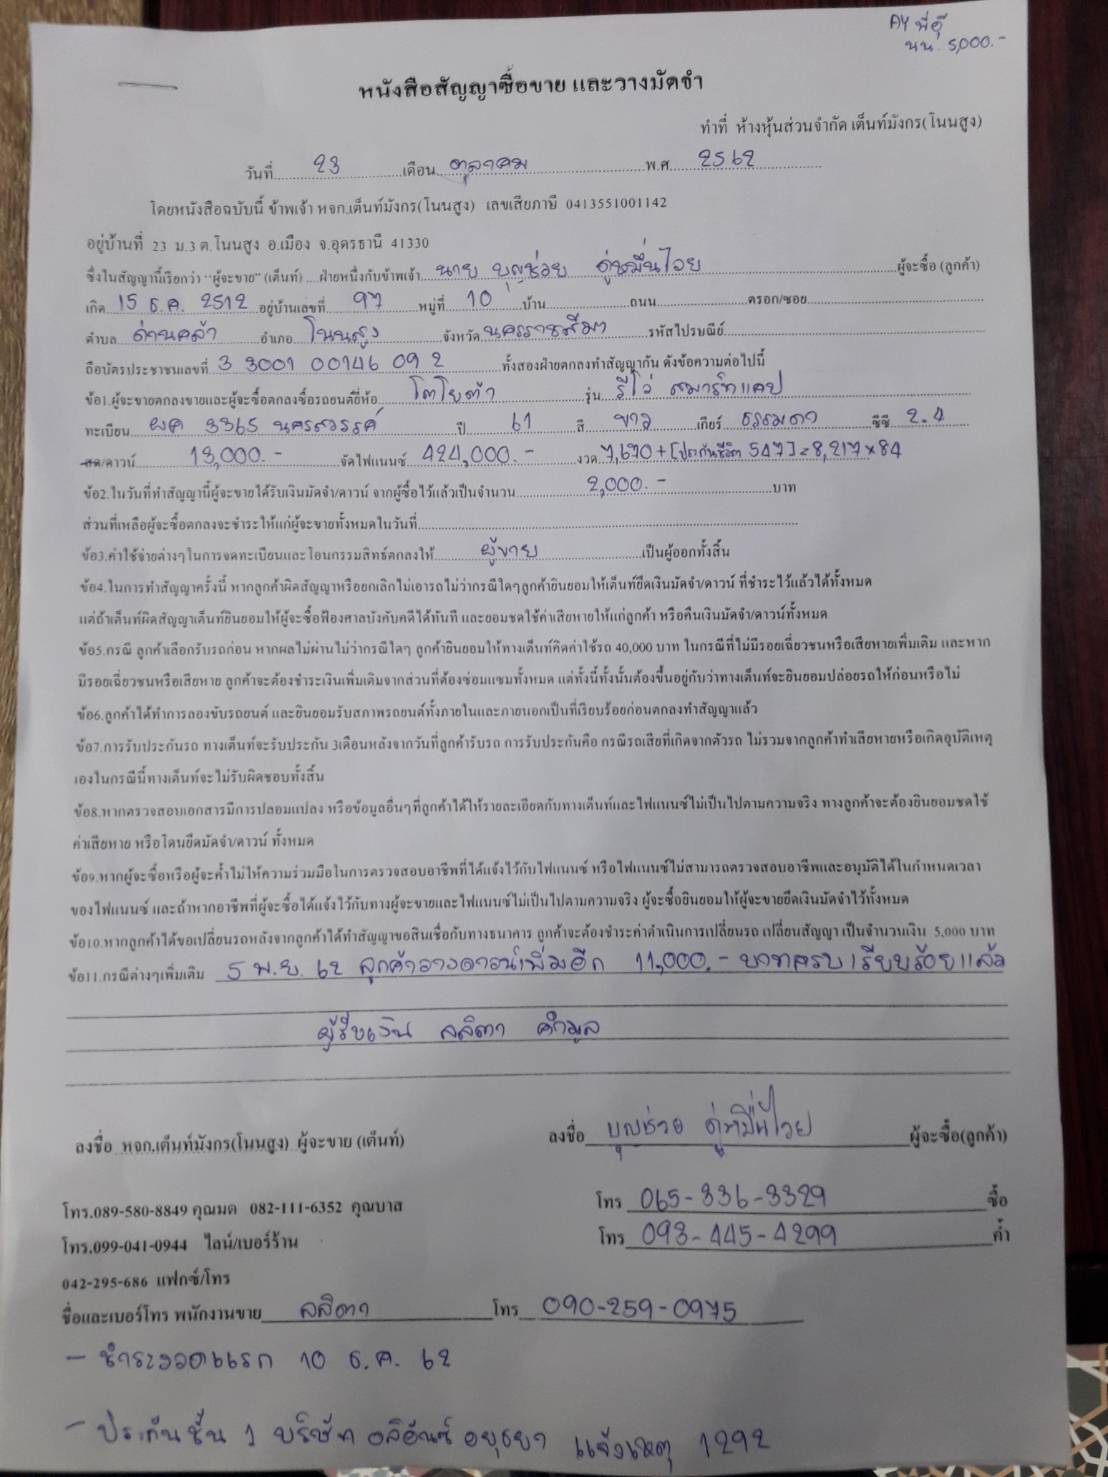 AY พี่อุ๊
นน. 5,000.-
หนังสือสัญญาซื้อขาย และวางมัดจำ
ทำที่ ห้างหุ้นส่วนจำกัด เต็นท์มังกร(โนนสูง)
วันที่ 23 เดือน ตุลาคม พ.ศ. 2562
โดยหนังสือฉบับนี้ ข้าพเจ้า หจก.เต็นท์มังกร(โนนสูง) เลขเสียภาษี 0413551001142
อยู่บ้านที่ 23 ม.3 ต.โนนสูง อ.เมือง จ.อุดรธานี 41330
ซึ่งในสัญญานี้เรียกว่า "ผู้จะขาย" (เต็นท์) ....ฝ่ายหนึ่งกับข้าพเจ้า นาย บุญช่วย ดู่หมื่นไวย ผู้จะซื้อ (ลูกค้า)
เกิด 15 ธ.ค. 2512 อยู่บ้านเลขที่ 97 หมู่ที่ 10 บ้าน ถนน ตรอก/ซอย
ตำบล ด่านคล้า อำเภอ โนนสูง จังหวัด นครราชสีมา รหัสไปรษณีย์
ถือบัตรประชาชนเลขที่ 3 3001 00146 09 2 ทั้งสองฝ่ายตกลงทำสัญญากัน ดังข้อความต่อไปนี้
ข้อ1.ผู้จะขายตกลงขายและผู้จะซื้อตกลงซื้อรถยนต์ยี่ห้อ โตโยต้า รุ่น รีโว่ สมาร์ทแคป
ทะเบียน ผค 3365 นครสวรรค์ ปี 61 สี ขาว เกียร์ ธรรมดา ซีซี 2.4
สด/ดาวน์ 13,000.- จัดไฟแนนซ์ 424,000.- งวด 7,670+[ประกันชีวิต 547]=8,217×84
ข้อ2.ในวันที่ทำสัญญานี้ผู้จะขายได้รับเงินมัดจำ/ดาวน์ จากผู้ซื้อไว้แล้วเป็นจำนวน 2,000.- บาท
ส่วนที่เหลือผู้จะซื้อตกลงจะชำระให้แก่ผู้จะขายทั้งหมดในวันที่
ข้อ3.ค่าใช้จ่ายต่างๆในการจดทะเบียนและโอนกรรมสิทธิ์ตกลงให้ ผู้ขาย เป็นผู้ออกทั้งสิ้น
ข้อ4.ในการทำสัญญาครั้งนี้ หากลูกค้าผิดสัญญาหรือยกเลิกไม่เอารถไม่ว่ากรณีใดๆลูกค้ายินยอมให้เต็นท์ยึดเงินมัดจำ/ดาวน์ ที่ชำระไว้แล้วได้ทั้งหมด
แต่ถ้าเต็นท์ผิดสัญญาเต็นท์ยินยอมให้ผู้จะซื้อฟ้องศาลบังคับคดีได้ทันที และยอมชดใช้ค่าเสียหายให้แก่ลูกค้า หรือคืนเงินมัดจำ/ดาวน์ทั้งหมด
ข้อ5.กรณี ลูกค้าเลือกรับรถก่อน หากผลไม่ผ่านไม่ว่ากรณีใดๆ ลูกค้ายินยอมให้ทางเต็นท์คิดค่าใช้รถ 40,000 บาท ในกรณีที่ไม่มีรอยเฉี่ยวชนหรือเสียหายเพิ่มเติม และหาก
มีรอยเฉี่ยวชนหรือเสียหาย ลูกค้าจะต้องชำระเงินเพิ่มเติมจากส่วนที่ต้องซ่อมแซมทั้งหมด แต่ทั้งนี้ทั้งนั้นต้องขึ้นอยู่กับว่าทางเต็นท์จะยินยอมปล่อยรถให้ก่อนหรือไม่
ข้อ6.ลูกค้าได้ทำการลองขับรถยนต์ และยินยอมรับสภาพรถยนต์ทั้งภายในและภายนอกเป็นที่เรียบร้อยก่อนตกลงทำสัญญาแล้ว
ข้อ7.การรับประกันรถ ทางเต็นท์จะรับประกัน 3เดือนหลังจากวันที่ลูกค้ารับรถ การรับประกันคือ กรณีรถเสียที่เกิดจากตัวรถ ไม่รวมจากลูกค้าทำเสียหายหรือเกิดอุบัติเหตุ
เองในกรณีนี้ทางเต็นท์จะไม่รับผิดชอบทั้งสิ้น
ข้อ8.หากตรวจสอบเอกสารมีการปลอมแปลง หรือข้อมูลอื่นๆที่ลูกค้าได้ให้รายละเอียดกับทางเต็นท์และไฟแนนซ์ไม่เป็นไปตามความจริง ทางลูกค้าจะต้องยินยอมชดใช้
ค่าเสียหาย หรือโดนยึดมัดจำ/ดาวน์ ทั้งหมด
ข้อ9.หากผู้จะซื้อหรือผู้จะค้ำไม่ให้ความร่วมมือในการตรวจสอบอาชีพที่ได้แจ้งไว้กับไฟแนนซ์ หรือไฟแนนซ์ไม่สามารถตรวจสอบอาชีพและอนุมัติได้ในกำหนดเวลา
ของไฟแนนซ์ และถ้าหากอาชีพที่ผู้จะซื้อได้แจ้งไว้กับทางผู้จะขายและไฟแนนซ์ไม่เป็นไปตามความจริง ผู้จะซื้อยินยอมให้ผู้จะขายยึดเงินมัดจำไว้ทั้งหมด
ข้อ10.หากลูกค้าได้ขอเปลี่ยนรถหลังจากลูกค้าได้ทำสัญญาขอสินเชื่อกับทางธนาคาร ลูกค้าจะต้องชำระค่าดำเนินการเปลี่ยนรถ เปลี่ยนสัญญา เป็นจำนวนเงิน 5,000 บาท
ข้อ11.กรณีต่างๆเพิ่มเติม 5 พ.ย. 62 ลูกค้าวางดาวน์เพิ่มอีก 11,000.- บาทครบเรียบร้อยแล้ว
ผู้รับเงิน ลลิตา คำมูล
ลงชื่อ หจก.เต็นท์มังกร(โนนสูง) ผู้จะขาย (เต็นท์) ลงชื่อ บุญช่วย ดู่หมื่นไวย ผู้จะซื้อ(ลูกค้า)
โทร.089-580-8849 คุณมด 082-111-6352 คุณบาส โทร 065-336-3329 ซื้อ
โทร.099-041-0944 ไลน์/เบอร์ร้าน โทร 093-445-4299 ค้ำ
042-295-686 แฟกซ์/โทร
ชื่อและเบอร์โทร พนักงานขาย ลลิตา โทร 090-259-0975
- ชำระงวดแรก 10 ธ.ค. 62
- ประกันชั้น 1 บริษัท อลิอันซ์ อยุธยา แจ้งเหตุ 1292